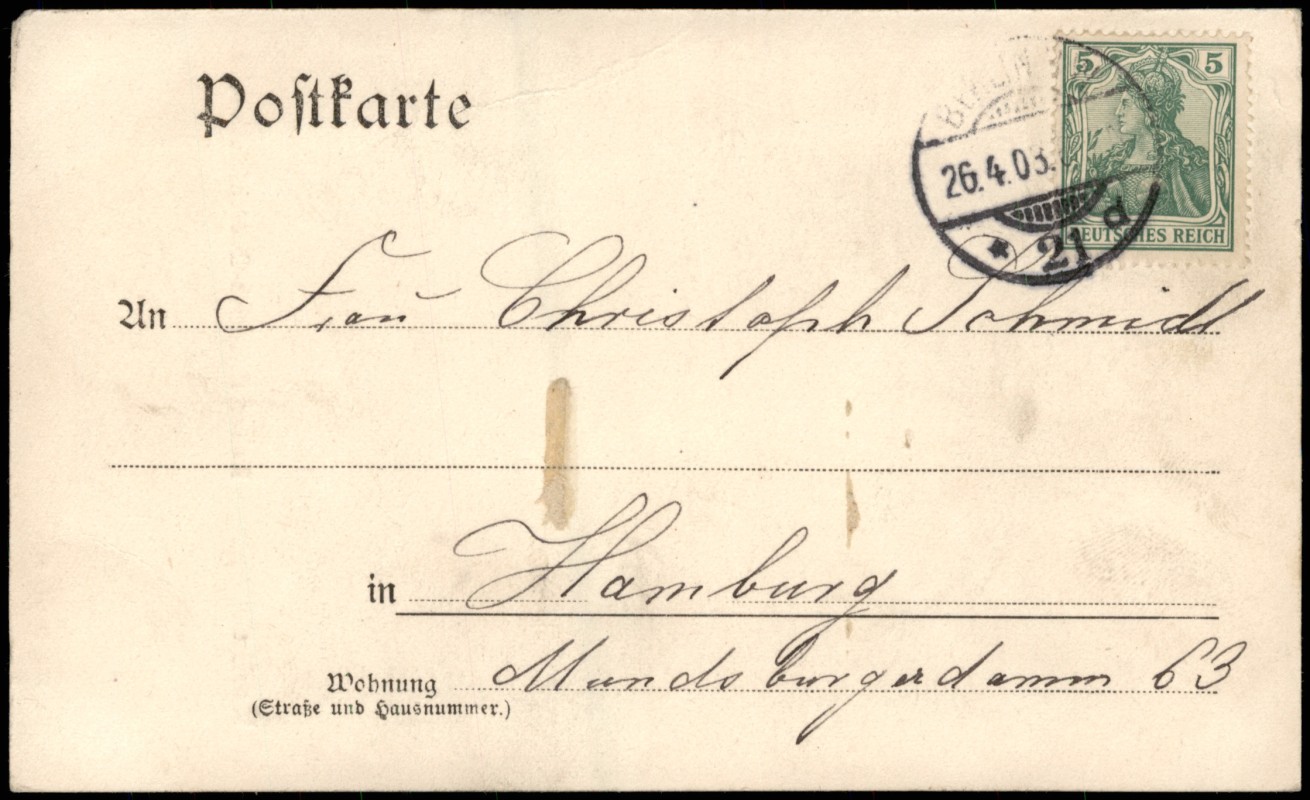 Postkarte
5 5
BERLIN
26.4.03.
* 21 d
DEUTSCHES REICH
An Frau Christoph Schmidt
in Hamburg
Mundsburgerdamm 63
Wohnung
(Straße und Hausnummer.)